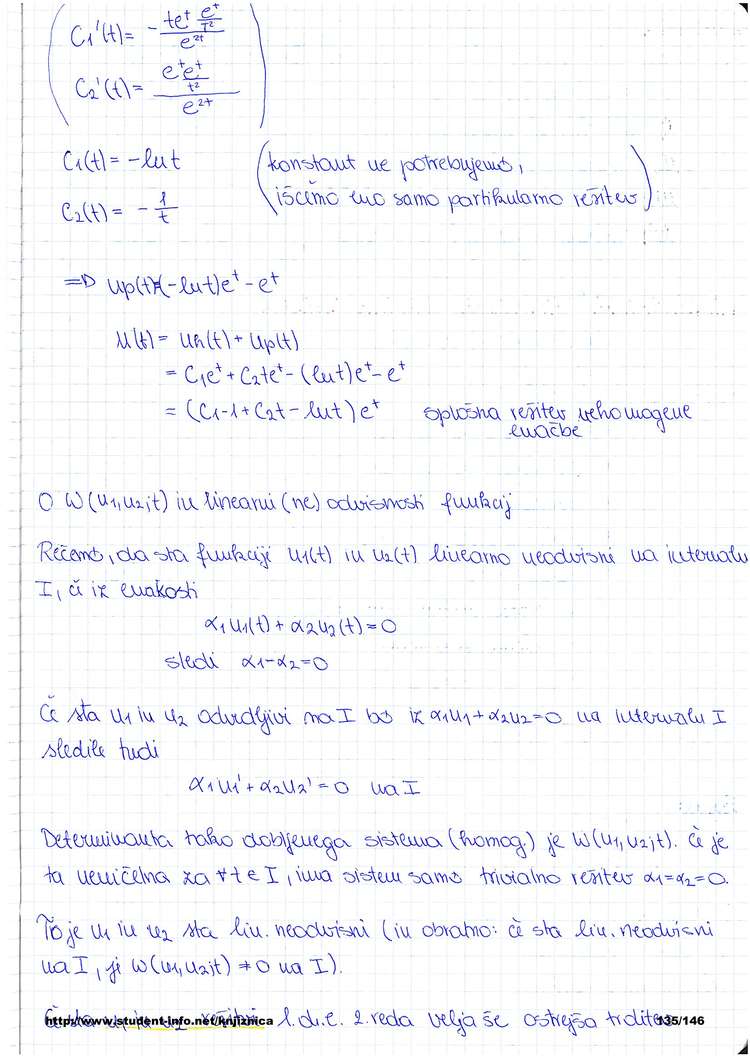 C1'(t) = - (te^t e^t/t²)/e^2t
C2'(t) = (e^t e^t/t²)/e^2t
C1(t) = -ln t (konstant ne potrebujemo,
C2(t) = - 1/t iščemo eno samo partikularno rešitev)
=> up(t)=(-ln t)e^t - e^t
u(t) = uh(t) + up(t)
= C1e^t + C2te^t - (ln t)e^t - e^t
= (C1-1+C2t-ln t)e^t splošna rešitev nehomogene
enačbe
O W(u1,u2;t) in linearni (ne) odvisnosti funkcij
Rečemo, da sta funkciji u1(t) in u2(t) linearno neodvisni na intervalu
I, če iz enakosti
α1u1(t) + α2u2(t) = 0
sledi α1=α2=0
Če sta u1 in u2 odvedljivi na I bo iz α1u1+α2u2=0 na intervalu I
sledile tudi
α1u1' + α2u2' = 0 na I
Determinanta tako dobljenega sistema (homog.) je W(u1,u2;t). Če je
ta neničelna za ∀t∈I, ima sistem samo trivialno rešitev α1=α2=0.
To je u1 in u2 sta lin. neodvisni (in obratno: če sta lin. neodvisni
na I, je W(u1,u2;t) ≠ 0 na I).
Če sta u1 in u2 rešitvi l.d.e. 2. reda velja še ostrejša trditev
http://www.student-info.net/knjiznica 135/146